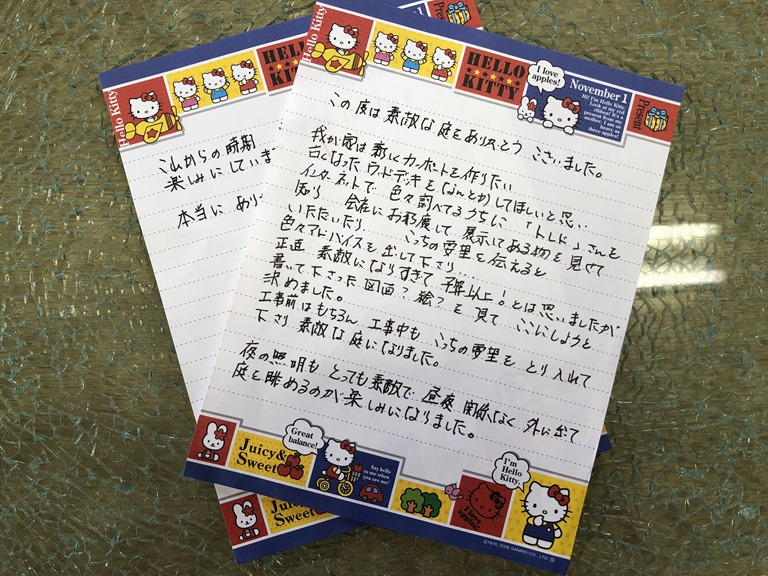 Hello Kitty
HELLO
KITTY
I love
apples!
November 1
Hi! I'm Hello Kitty.
Look at my red
ribbon! It's a
present from my
mother. I am as
heavy as
three apples!
Present
この度は素敵な庭をありがとうございました。
我が家は新しくカーポートを作りたい
古くなったウッドデッキをなんとかしてほしいと思い
インターネットで色々調べてるうちに「トレド」さんを
知り 会社にお邪魔して展示してある物を見せて
いただいたり… こっちの要望を伝えると
色々アドバイスを出して下さり…
正直 素敵になりすぎて予算以上!とは思いましたが
書いて下さった図面?絵?を見て ここにしようと
決めました。
工事前はもちろん 工事中も こっちの要望をとり入れて
下さり素敵な庭になりました。
夜の照明も とっても素敵で 昼夜関係なく外に出て
庭を眺めるのが楽しみになりました。
Juicy&
Sweet
Great
balance!
Say hello
to me when
you see me!
I love
apples!
I'm
Hello
Kitty.
©1976, 2008 SANRIO CO., LTD.
Hello Kitty
HELLO
KITTY
Present
これからの時期
楽しみにしていま
本当に あり
Juicy
Sweet